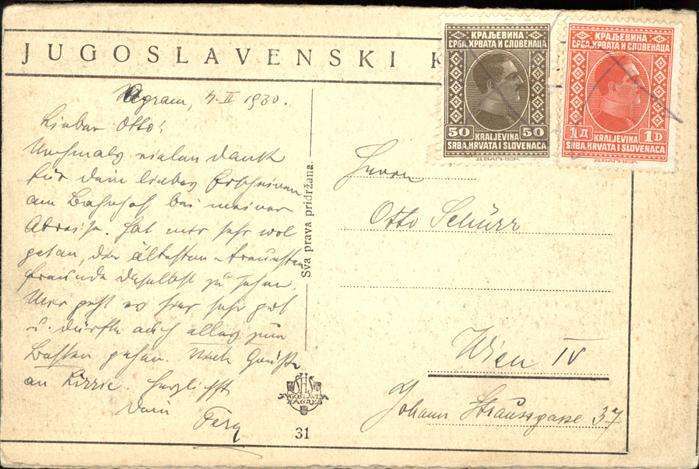 JUGOSLAVENSKI
КРАЉЕВИНА
СРБА, ХРВАТА И СЛОВЕНАЦА
50 50
KRALJEVINA
SRBA, HRVATA I SLOVENACA
КРАЉЕВИНА
СРБА, ХРВАТА И СЛОВЕНАЦА
1Д 1D
KRALJEVINA
SRBA, HRVATA I SLOVENACA
Agram, 4. II 1930.
Lieber Otto!
Nochmals vielen Dank
für dein liebes Erscheinen
am Bahnhof bei meiner
Abreise. Hat mir sehr wol
getan, den ältesten u. treuesten
Freund daselbst zu sehen.
Mir geht es hier sehr gut
u. dürfte auch alles zum
Besten gehen. Noch Grüße
an Lizzie. Herzlichst
Dein
Sva prava pridržana.
ZAGREB
31
Herrn
Otto Schürr
Wien IV
Johann Straussgasse 37